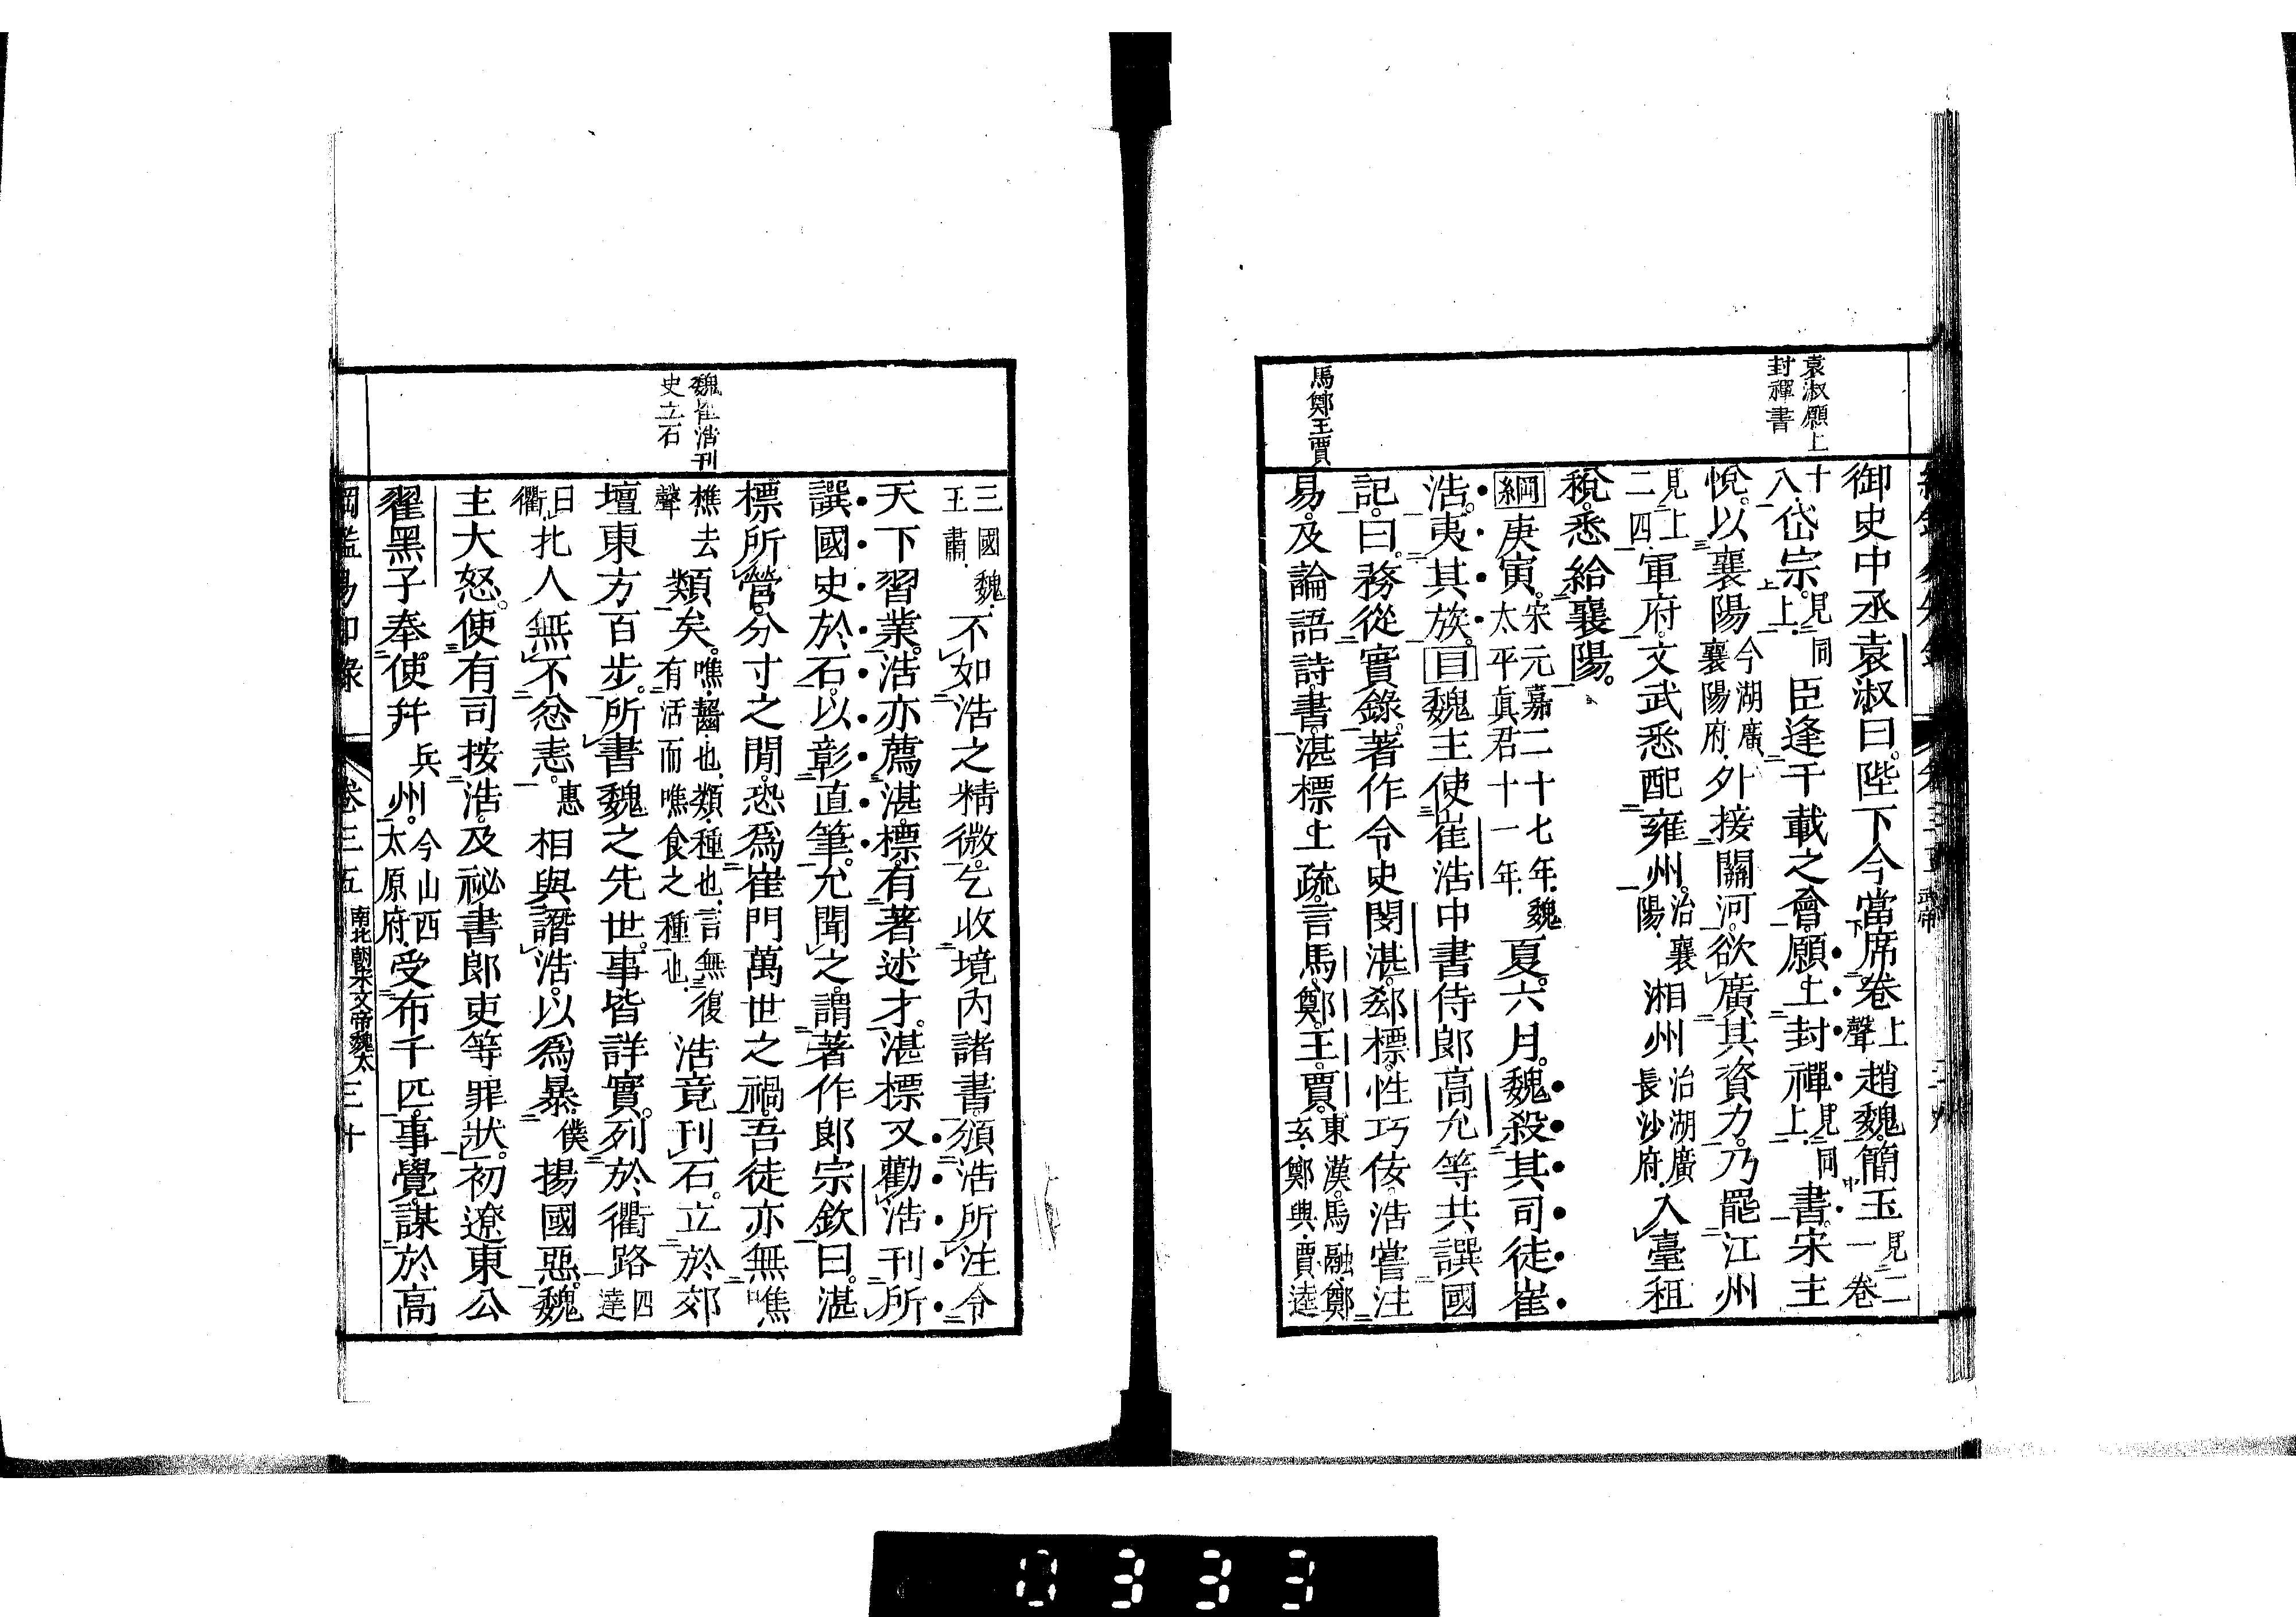 袁淑願上
封禪書
御史中丞袁淑曰陛下今當席卷上聲趙魏簡玉見二一卷
十八岱宗見同上上臣逢千載之會願上封禪見同上書宋主
悅以襄陽今湖廣襄陽府外接關河欲廣其資力乃罷江州
見上二四軍府文武悉配雍州治襄陽湘州治湖廣長沙府入臺租
稅悉給襄陽
綱庚寅宋元嘉二十七年魏太平眞君十一年夏六月魏殺其司徒崔
浩夷其族目魏主使崔浩中書侍郞高允等共譔國
記曰務從實錄著作令史閔湛郄標性巧佞浩嘗注
馬鄭王賈
易及論語詩書湛標上疏言馬鄭王賈東漢馬融鄭玄鄭興賈逵
三國魏王肅不如浩之精微乞收境內諸書頒浩所注令
天下習業浩亦薦湛標有著述才湛標又勸浩刊所
譔國史於石以彰直筆允聞之謂著作郞宗欽曰湛
標所營分寸之閒恐爲崔門萬世之禍吾徒亦無噍
魏崔浩刊
史立石
樵去聲類矣噍齧也類種也言無復有活而噍食之種也浩竟刊石立於郊
壇東方百步所書魏之先世事皆詳實列於衢路四達
曰衢北人無不忿恚惠相與譖浩以爲暴僕揚國惡魏
主大怒使有司按浩及祕書郞吏等罪狀初遼東公
翟黑子奉使幷兵州今山西太原府受布千匹事覺謀於高
綱鑑易知錄 卷三五 南北朝宋文帝魏太 三十
0333